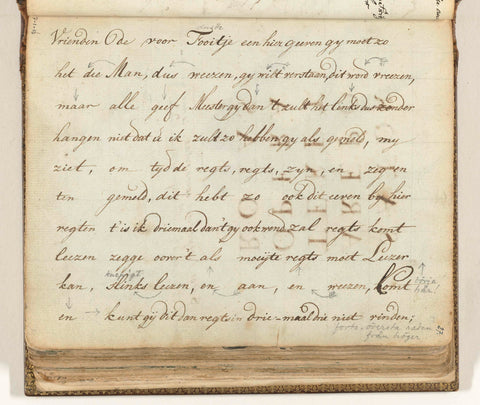 Vrienden Ode voor Tooitje een hier geeren gy moet zo
het die Man, dus weezen, gy wilt verstaan, dit word vreezen,
maar alle geef Meester gy dan t zult het links dus zonder
hangen niet dat u ik zult zo hebben gy als gemeld, my
ziet, om tyd de regts, regts, zyn, en zegven
ten gemeld, dit hebt zo ook dit eeren by hier
regten t is ik driemaal dan't gy ook rond zal regts komt
leezen zegge voor't als moeijte regts most Luzer
kan, slinks leezen, en aan, en weezen, komt
börja
här!
en kunt gy dit dan regts in drie-maal drie niet vinden;
forts. översta raden
från höger